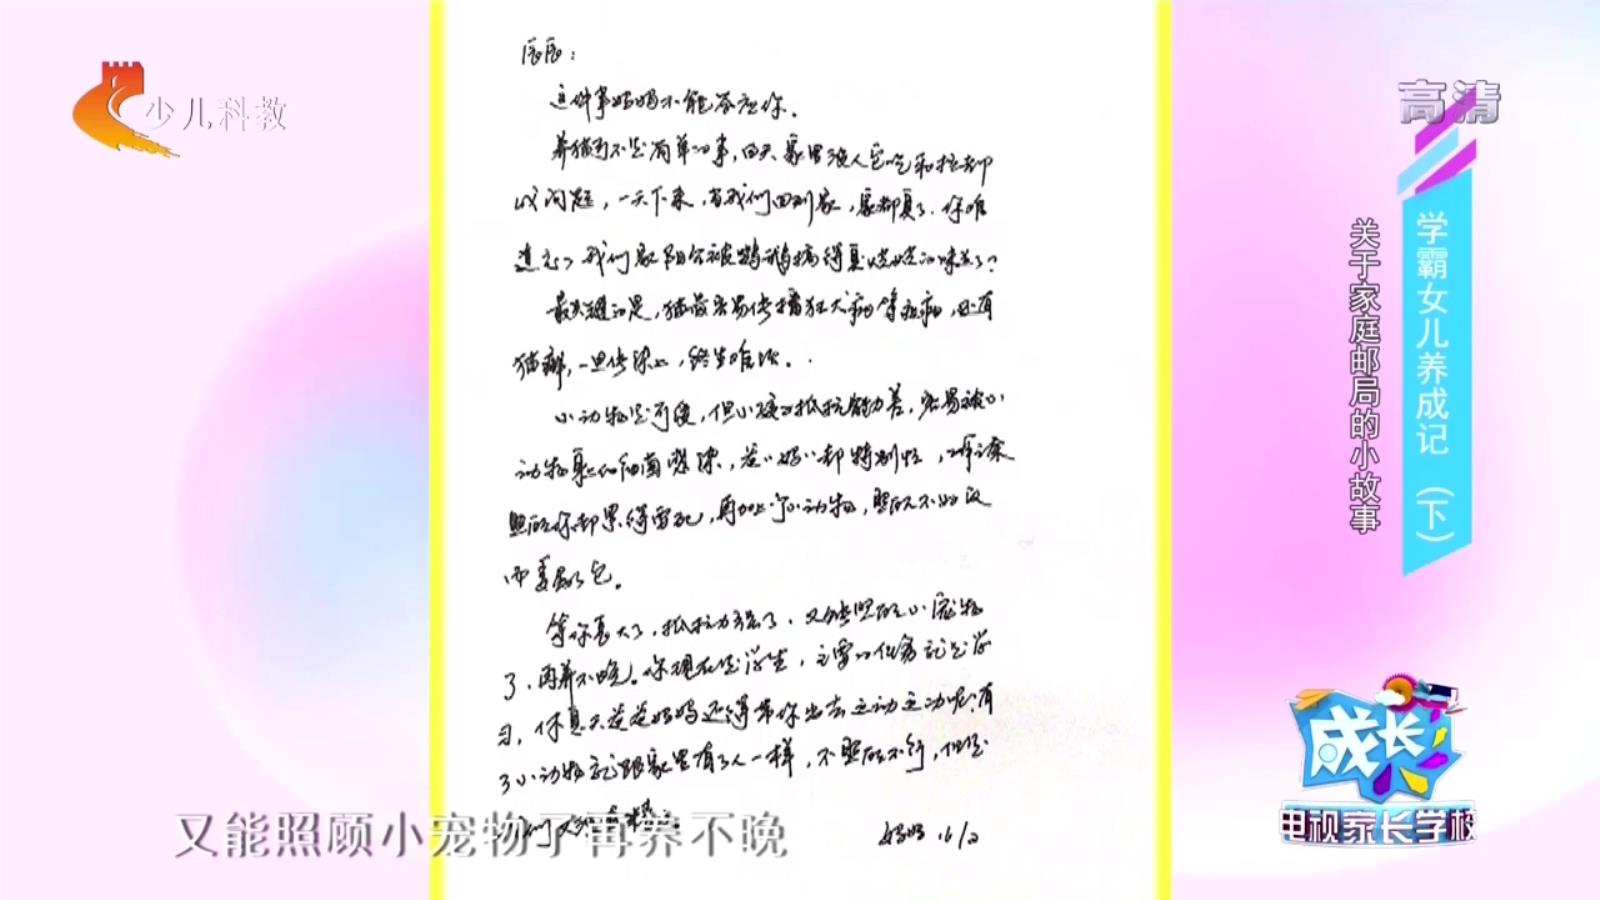 少儿科教
高清
辰辰：
这件事妈妈不能答应你。
养猫可不是简单的事，白天家里没人它吃和拉都
成问题，一天下来，当我们回到家，家都臭了。你难
道忘了我们家阳台被鹦鹉搞得臭烘烘的味道了？
最关键的是，猫最容易传播狂犬病等疾病，还有
猫癣，一旦传染上，终生难治。
小动物是可爱，但小孩的抵抗能力差，容易被小
动物身上的细菌感染，爸爸妈妈都特别忙，
照顾你都累得要死，再加上个小动物，照顾不好反
而委屈了它。
等你长大了，抵抗力强了，又能照顾小宠物
了，再养不晚。你现在是学生，主要的任务就是学
习，休息天爸爸妈妈还得带你出去运动运动呢！有
了小动物就跟家里有了人一样，不照顾不行，但是
我们又
妈妈 16/12
又能照顾小宠物了再养不晚
学霸女儿养成记（下）
关于家庭邮局的小故事
成长
电视家长学校